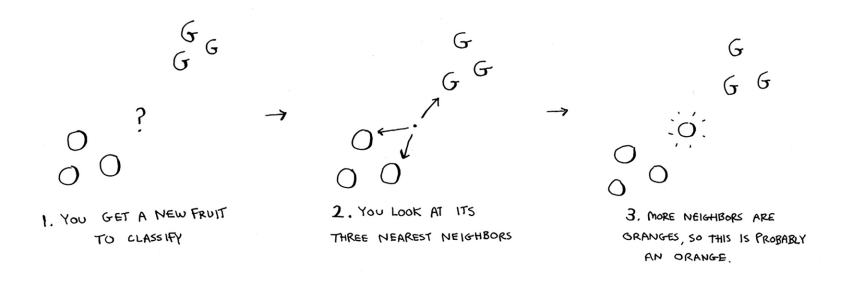 G
G
G
?
1. YOU GET A NEW FRUIT
TO CLASSIFY
G
G
G
2. YOU LOOK AT ITS
THREE NEAREST NEIGHBORS
G
G G
3. MORE NEIGHBORS ARE
ORANGES, SO THIS IS PROBABLY
AN ORANGE.